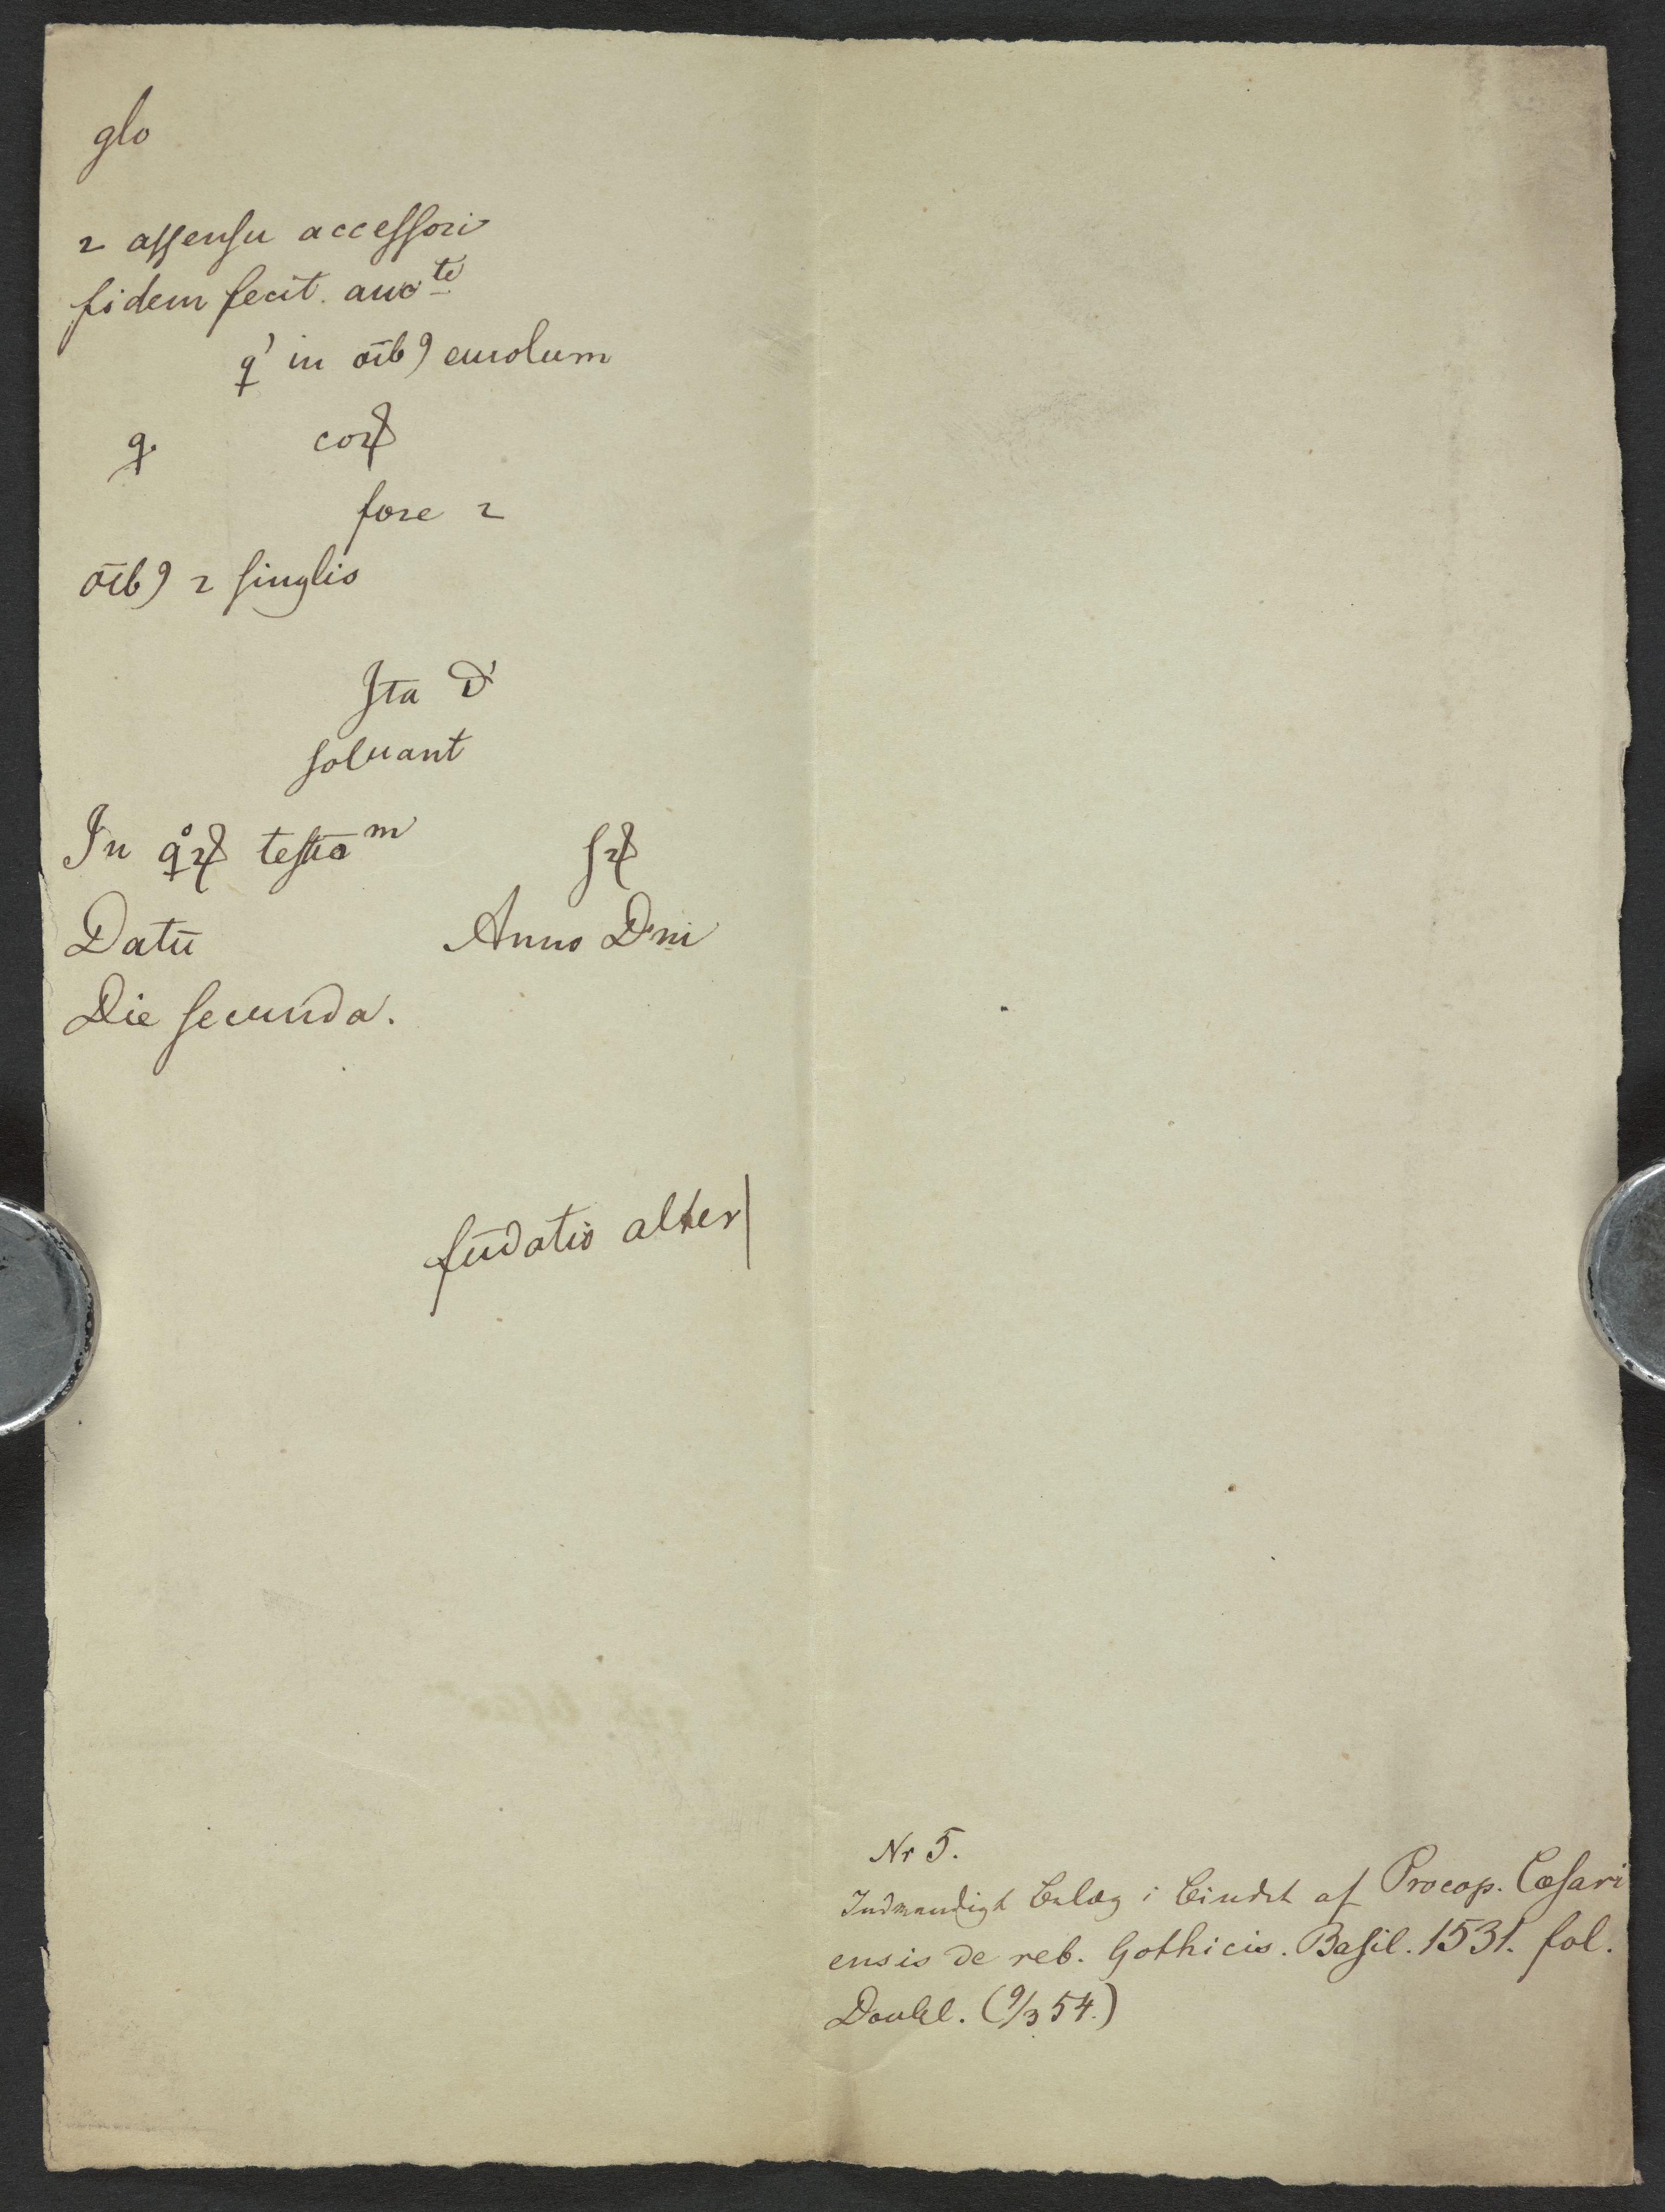 glo
ꝛ assensu accessori
fidem fecit. aucte
q' in oīb9 emolum
q. coꝝ
fore ꝛ
oīb9 ꝛ singlis
Ita d'
soluant
In qoꝝ testiom sꝝ
Datū Anno Dni
Die secunda.
fūdatio alter
Nr 5.
Indvendigt Belæg i Bindet af Procop. Cæsari
ensis de reb. Gothicis. Basil. 1531. fol.
Doubl. (9/3 54.)